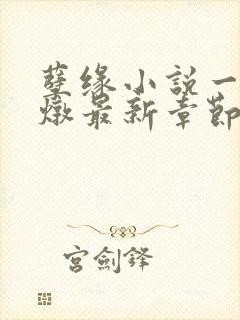 孽缘小說一
燉最新章節
宫劍鋒